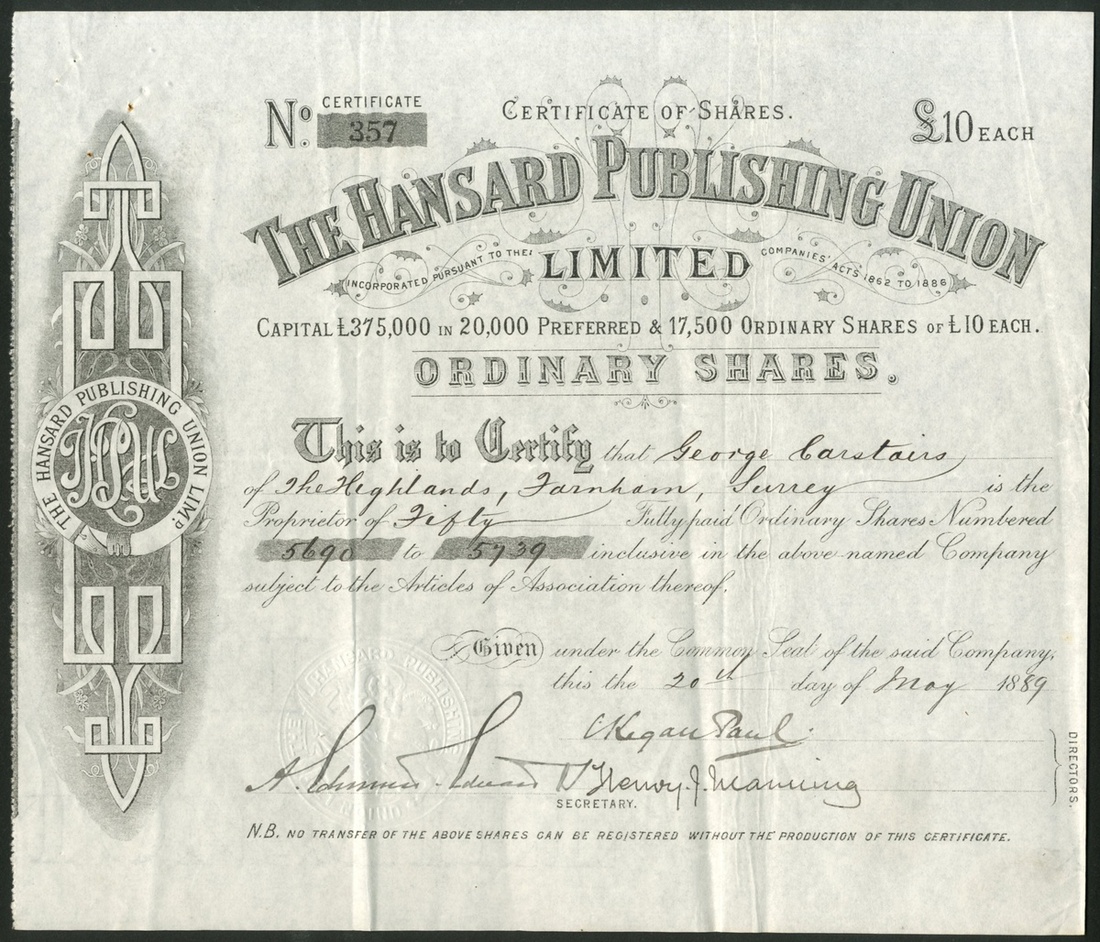 No. CERTIFICATE 357
CERTIFICATE OF SHARES.
£10 EACH
THE HANSARD PUBLISHING UNION
INCORPORATED PURSUANT TO THE LIMITED COMPANIES' ACTS 1862 TO 1886
CAPITAL £375,000 IN 20,000 PREFERRED & 17,500 ORDINARY SHARES OF £10 EACH.
ORDINARY SHARES.
THE HANSARD PUBLISHING UNION LIMD
HPUL
This is to Certify that George Carstairs
of The Highlands, Farnham, Surrey is the
Proprietor of Fifty Fully paid Ordinary Shares Numbered
5690 to 5739 inclusive in the above named Company
subject to the Articles of Association thereof.
Given under the Common Seal of the said Company,
this the 20th day of May 1889
THE HANSARD PUBLISHING
C Kegan Paul
Henry J. Manning
SECRETARY.
DIRECTORS.
N.B. NO TRANSFER OF THE ABOVE SHARES CAN BE REGISTERED WITHOUT THE PRODUCTION OF THIS CERTIFICATE.